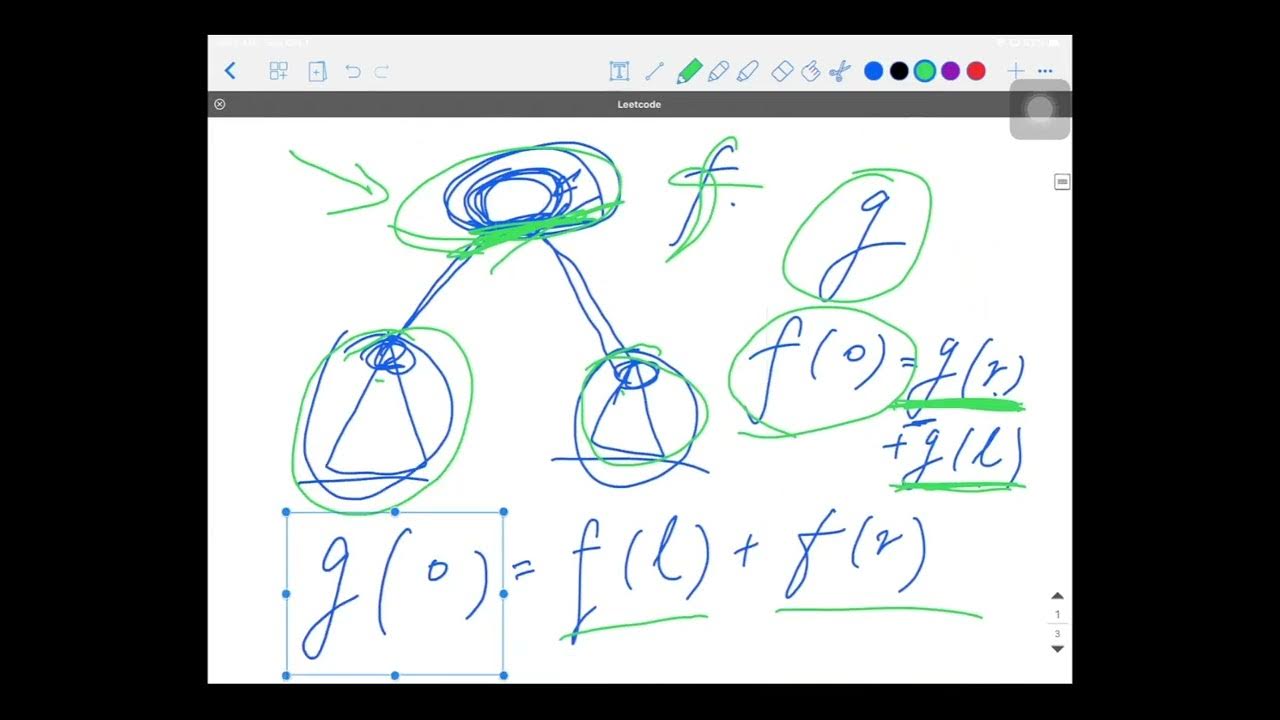 Leetcode
f
g
f(0) = g(r)
+ g(l)
g(0) = f(l) + f(r)
1
3